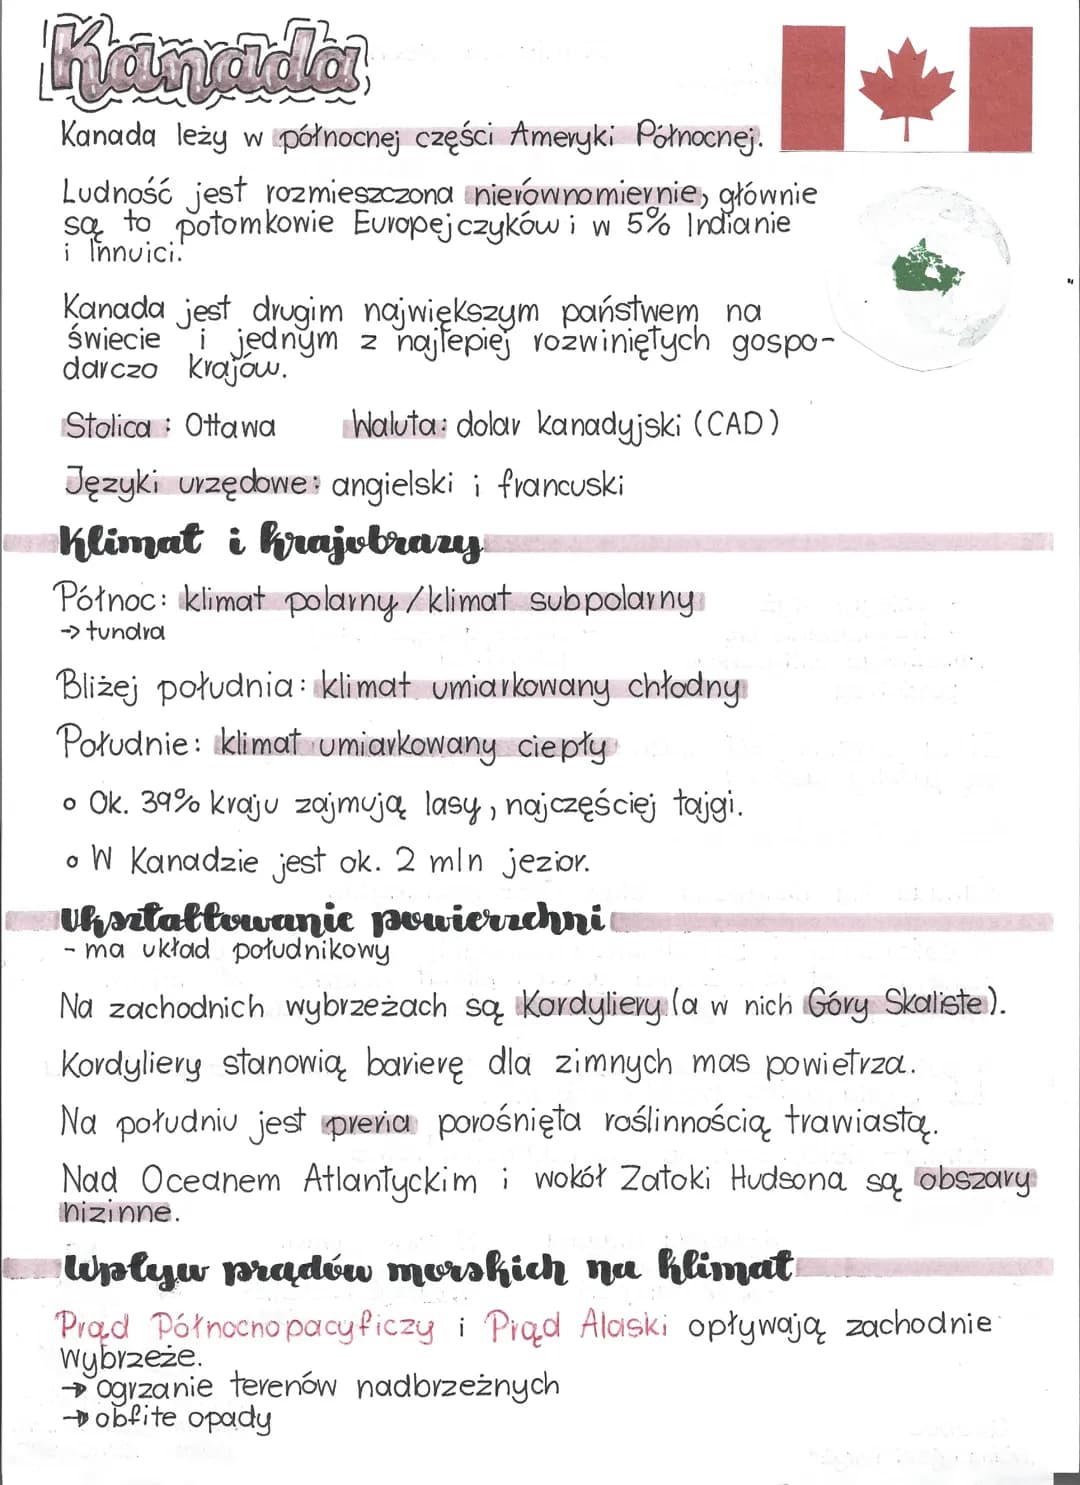 Kanada
Kanada leży w północnej części Ameryki Północnej.
Ludność jest rozmieszczona nierównomiernie, głównie
są to potomkowie Europejczyków i w 5% Indianie
i Innuici.
Kanada jest drugim największym państwem na
świecie i jednym z najlepiej rozwiniętych gospo-
darczo krajów.
Stolica: Ottawa Waluta: dolar kanadyjski (CAD)
Języki urzędowe: angielski i francuski
Klimat i krajobrazy
Północ: klimat polarny/klimat subpolarny
→ tundra
Bliżej południa: klimat umiarkowany chłodny
Południe: klimat umiarkowany ciepły
o Ok. 39% kraju zajmują lasy, najczęściej tajgi.
o W Kanadzie jest ok. 2 mln jezior.
Ukształtowanie powierzchni
- ma układ południkowy
Na zachodnich wybrzeżach są Kordyliery (a w nich Góry Skaliste).
Kordyliery stanowią barierę dla zimnych mas powietrza.
Na południu jest preria porośnięta roślinnością trawiastą.
Nad Oceanem Atlantyckim i wokół Zatoki Hudsona są obszary
nizinne.
Wpływ prądów morskich na klimat
Prąd Północnopacyficzy i Prąd Alaski opływają zachodnie
wybrzeże.
→ ogrzanie terenów nadbrzeżnych
→ obfite opady